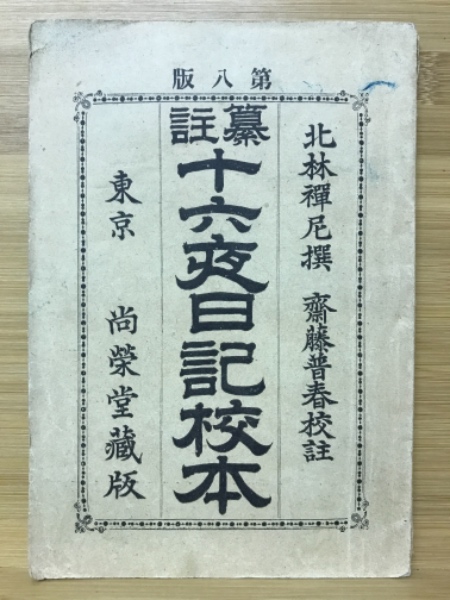 第八版
北林禪尼撰 齋藤普春校註
纂註
十六夜日記校本
東京 尚榮堂藏版